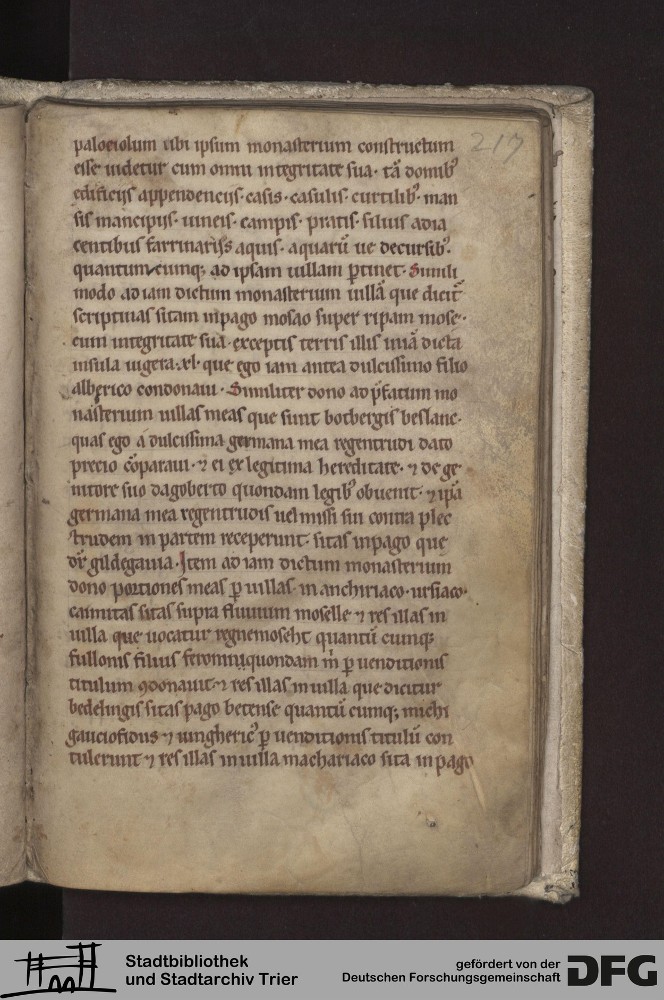 217
palociolum ubi ipsum monasterium constructum
esse uidetur cum omni integritate sua · tā domib᷒
edificijs appendencijs · casis · casulis · curtilib᷒ · man
sis mancipijs · uineis · campis · pratis · siluis adia
centibus farrinarijs aquis · aquarū ue decursib᷒ ·
quantumcumq; ad ipsam uillam ꝑtinet · Simili
modo ad iam dictum monasterium uillā que dicit᷑
scriptiuias sitam in pago mosao super ripam mose ·
cum integritate sua · exceptis terris illis iuxā dicta
insula uigera · ƚ · que ego iam antea dulcissimo filio
alberico condonaui · Similiter dono ad p̄fatum mo
nasterium uillas meas que sunt botbergis beslanc ·
quas ego a dulcissima germana mea regentrudi dato
precio cōparaui · ⁊ ei ex legitima hereditate · ⁊ de ge
nitore suo dagoberto quondam legib᷒ obuenit · ⁊ ip̄a
germana mea regentrudis uel missi sui contra plec
trudem in partem receperunt · sitas in pago que
dr̄ gildegauia · Item ad iam dictum monasterium
dono portiones meas ꝑ uillas in anchiriaco · ursiaco ·
caimitas sitas supra fluuium moselle ⁊ res illas in
uilla que uocatur regnemoseht quantū cumq;
fullonis filius quondam m̄ ꝑ uenditionis
titulum ꝯdonauit · ⁊ res illas in uilla que dicitur
bedelingis sitas pago betense quantū cumq; michi
gauciofidus ⁊ uingheric᷒ ꝑ uenditionis titulū con
tulerunt ⁊ res illas in uilla machariaco sita in pago
Stadtbibliothek
und Stadtarchiv Trier
gefördert von der
Deutschen Forschungsgemeinschaft
DFG